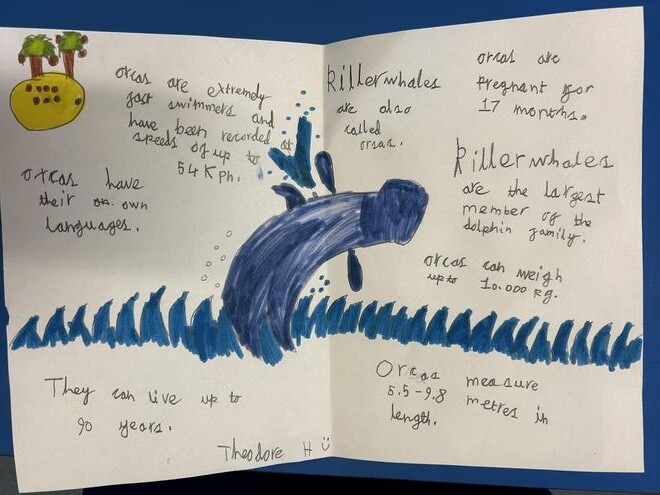 orcas are extremely
fast swimmers and
have been recorded at
speeds of up to
54 Kph.
orcas have
their on own
languages.
They can live up to
90 years.
Theodore H
killerwhales
are also
called
orsas.
orcas are
pregnant for
17 months.
killerwhales
are the largest
member of the
dolphin family.
orcas can weigh
up to 10.000 kg.
Orcas measure
5.5-9.8 metres in
length.